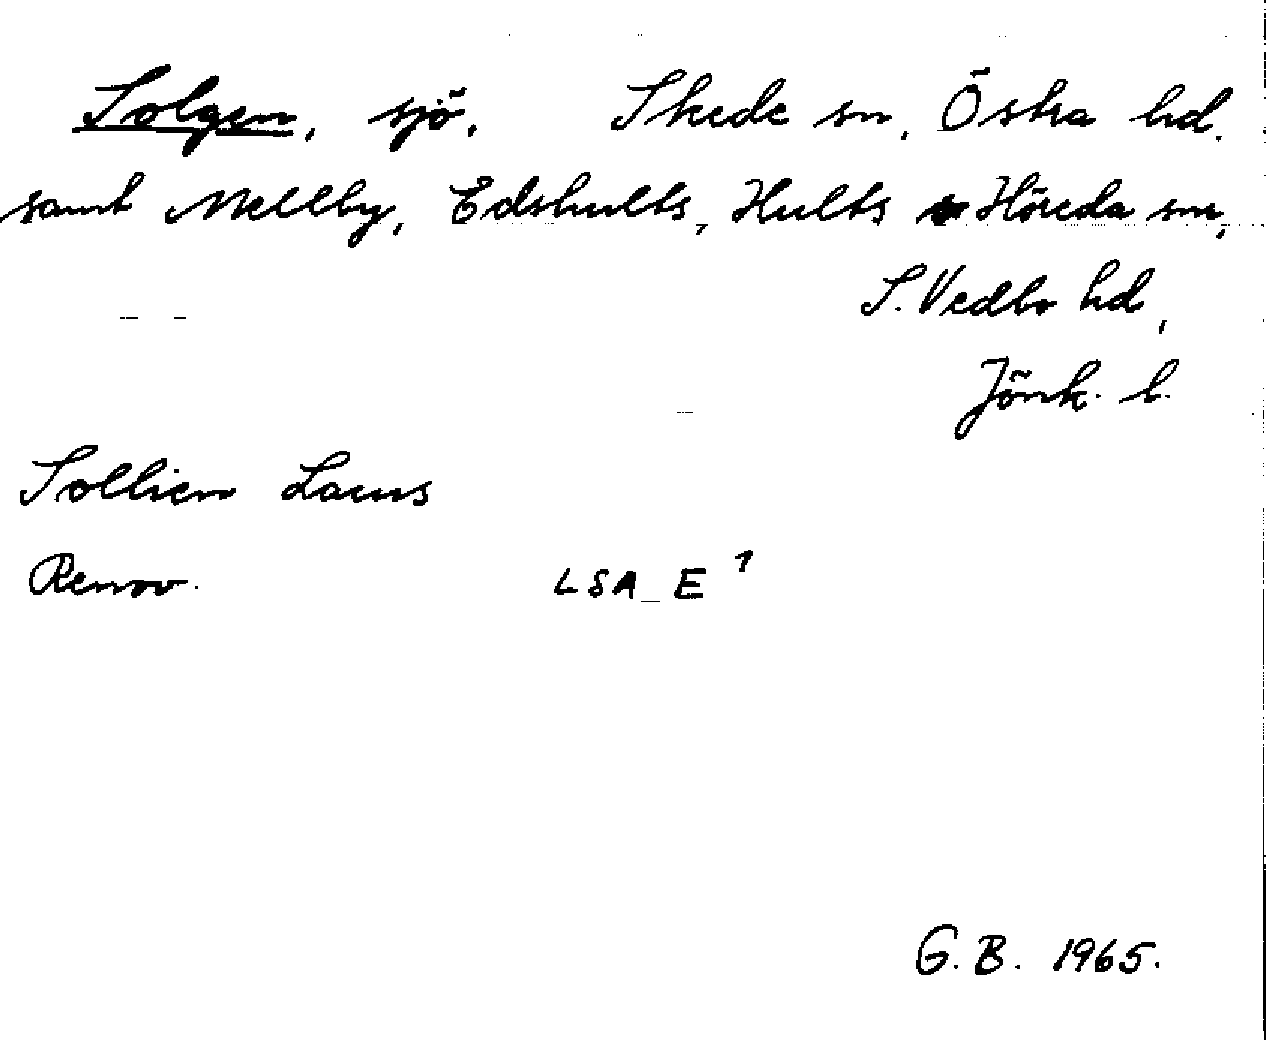 Solgen, sjö. Skede sn, Östra hd.
samt Mellby, Edshults, Hults o Höreda snr,
S. Vedbo hd,
Jönk. l.
Sollien Lacus
Renov. LSA_E 1
G. B. 1965.